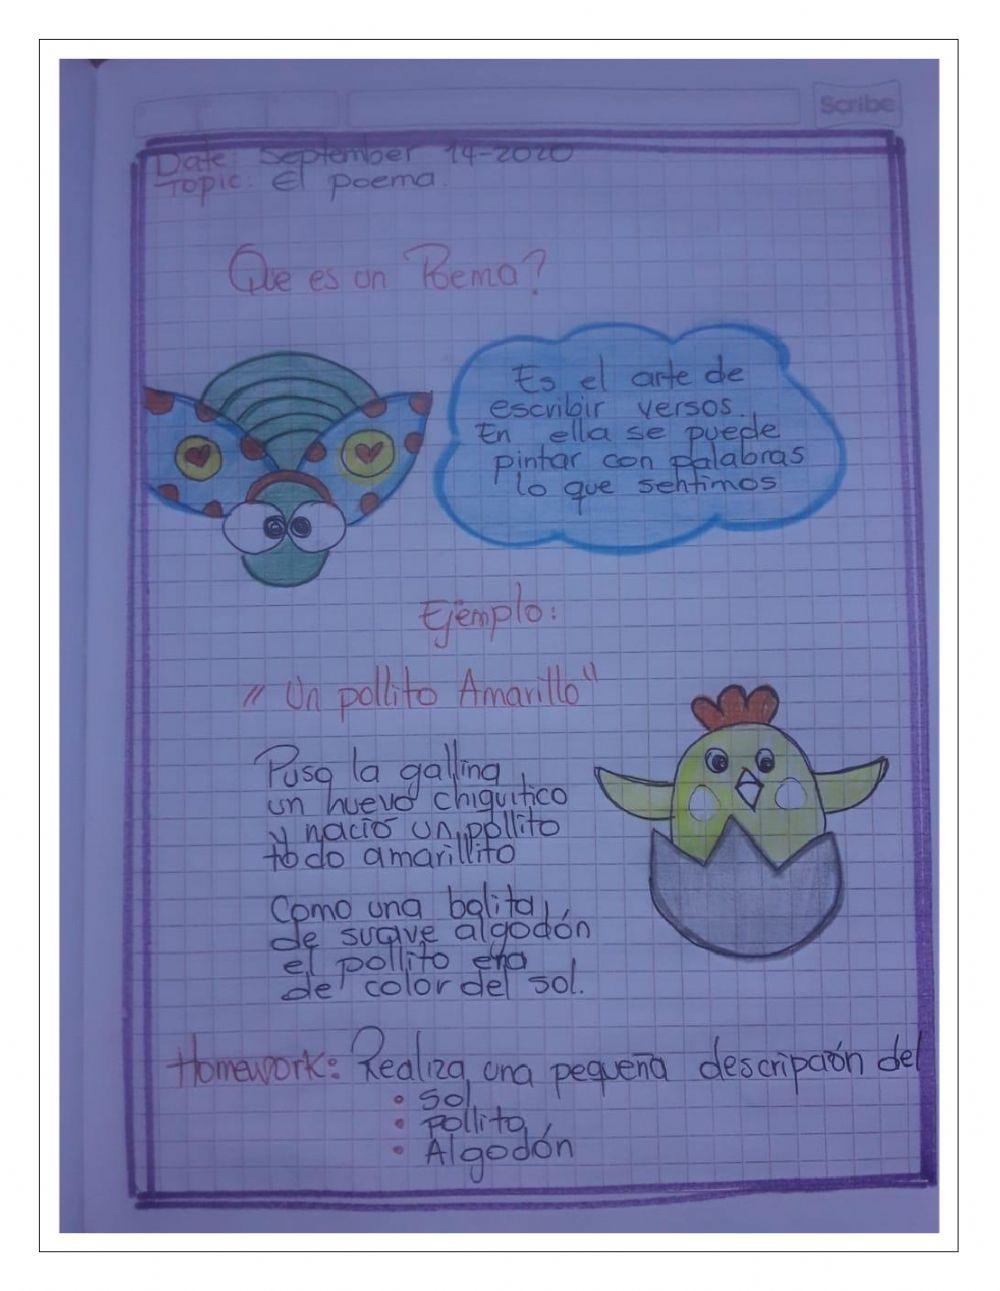 Scribe
Date: September 14-2020
Topic: El poema.
Que es un Poema?
Es el arte de
escribir versos.
En ella se puede
pintar con palabras
lo que sentimos
Ejemplo:
"Un pollito Amarillo"
Puso la gallina
un huevo chiquitico
y nació un pollito
todo amarillito
Como una bolita
de suave algodón
el pollito era
del color del sol.
Homework: Realiza una pequeña descripción del
• sol
• pollito
• Algodón